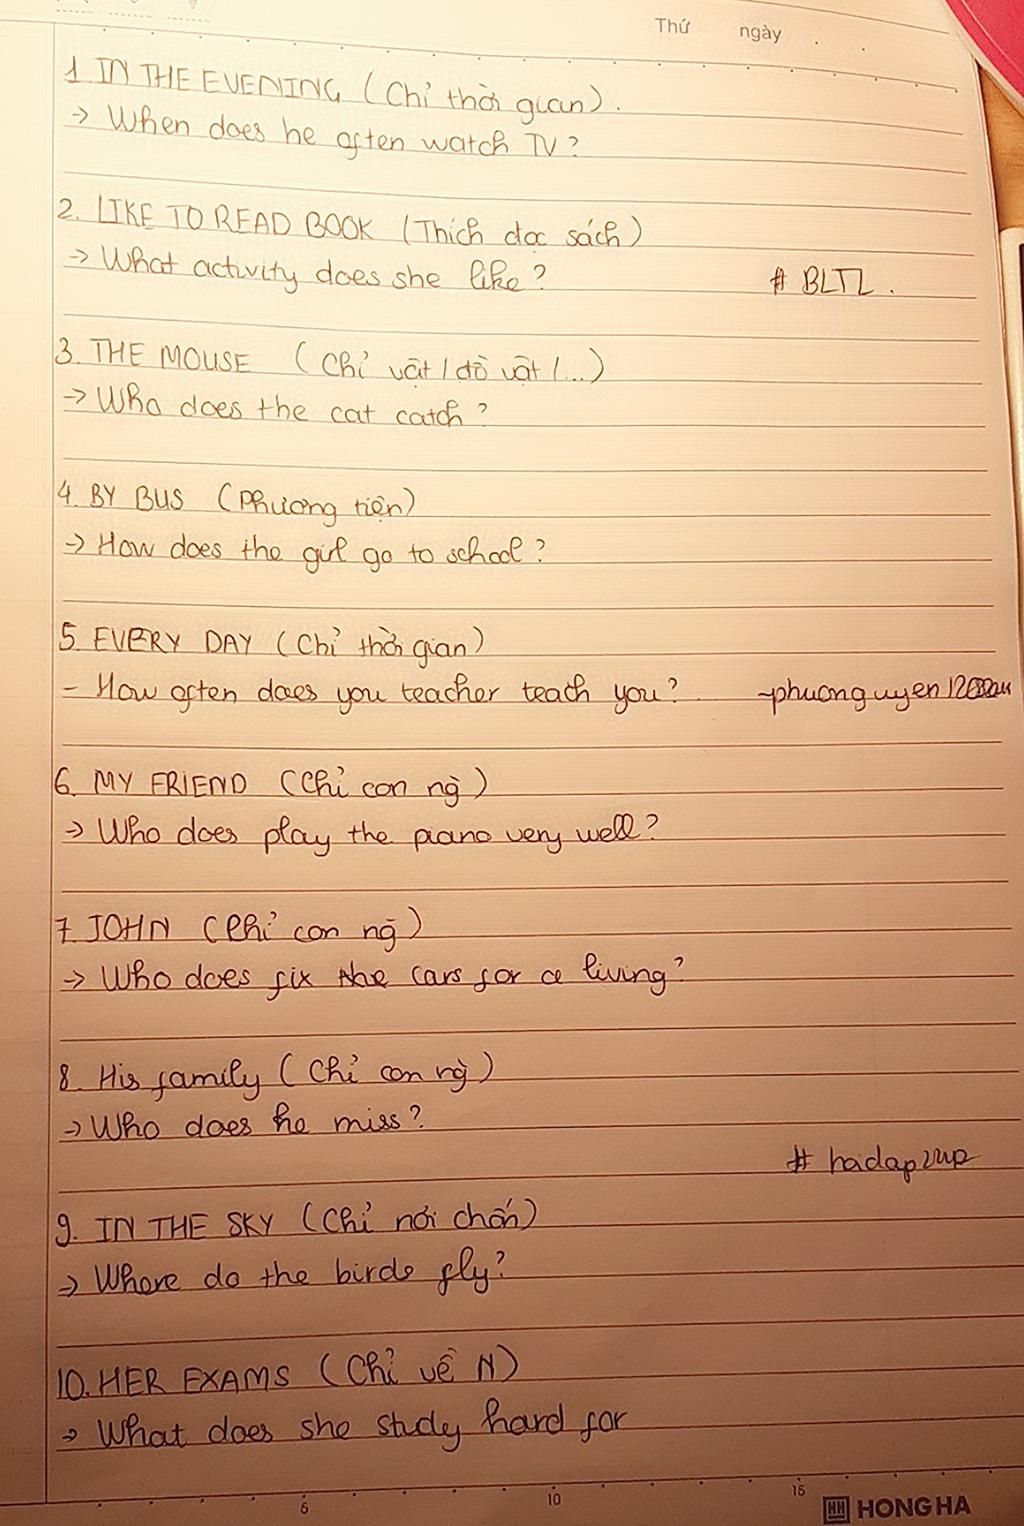 Thứ ngày
1 IN THE EVENING (Chỉ thời gian).
→ When does he often watch TV?
2. LIKE TO READ BOOK (Thích đọc sách)
→ What activity does she like? # BLTL.
3. THE MOUSE (Chỉ vật / đồ vật /...)
→ Who does the cat catch?
4. BY BUS (Phương tiện)
→ How does the girl go to school?
5. EVERY DAY (Chỉ thời gian)
- How often does you teacher teach you?
6. MY FRIEND (Chỉ con ng`)
→ Who does play the piano very well?
7. JOHN (Chỉ con ng`)
→ Who does fix the cars for a living?
8. His family (Chỉ con ng`)
→ Who does he miss?
# hoidap247
9. IN THE SKY (Chỉ nơi chốn)
→ Where do the birds fly?
10. HER EXAMS (Chỉ về N)
→ What does she study hard for
5 10 15
HH HONG HA